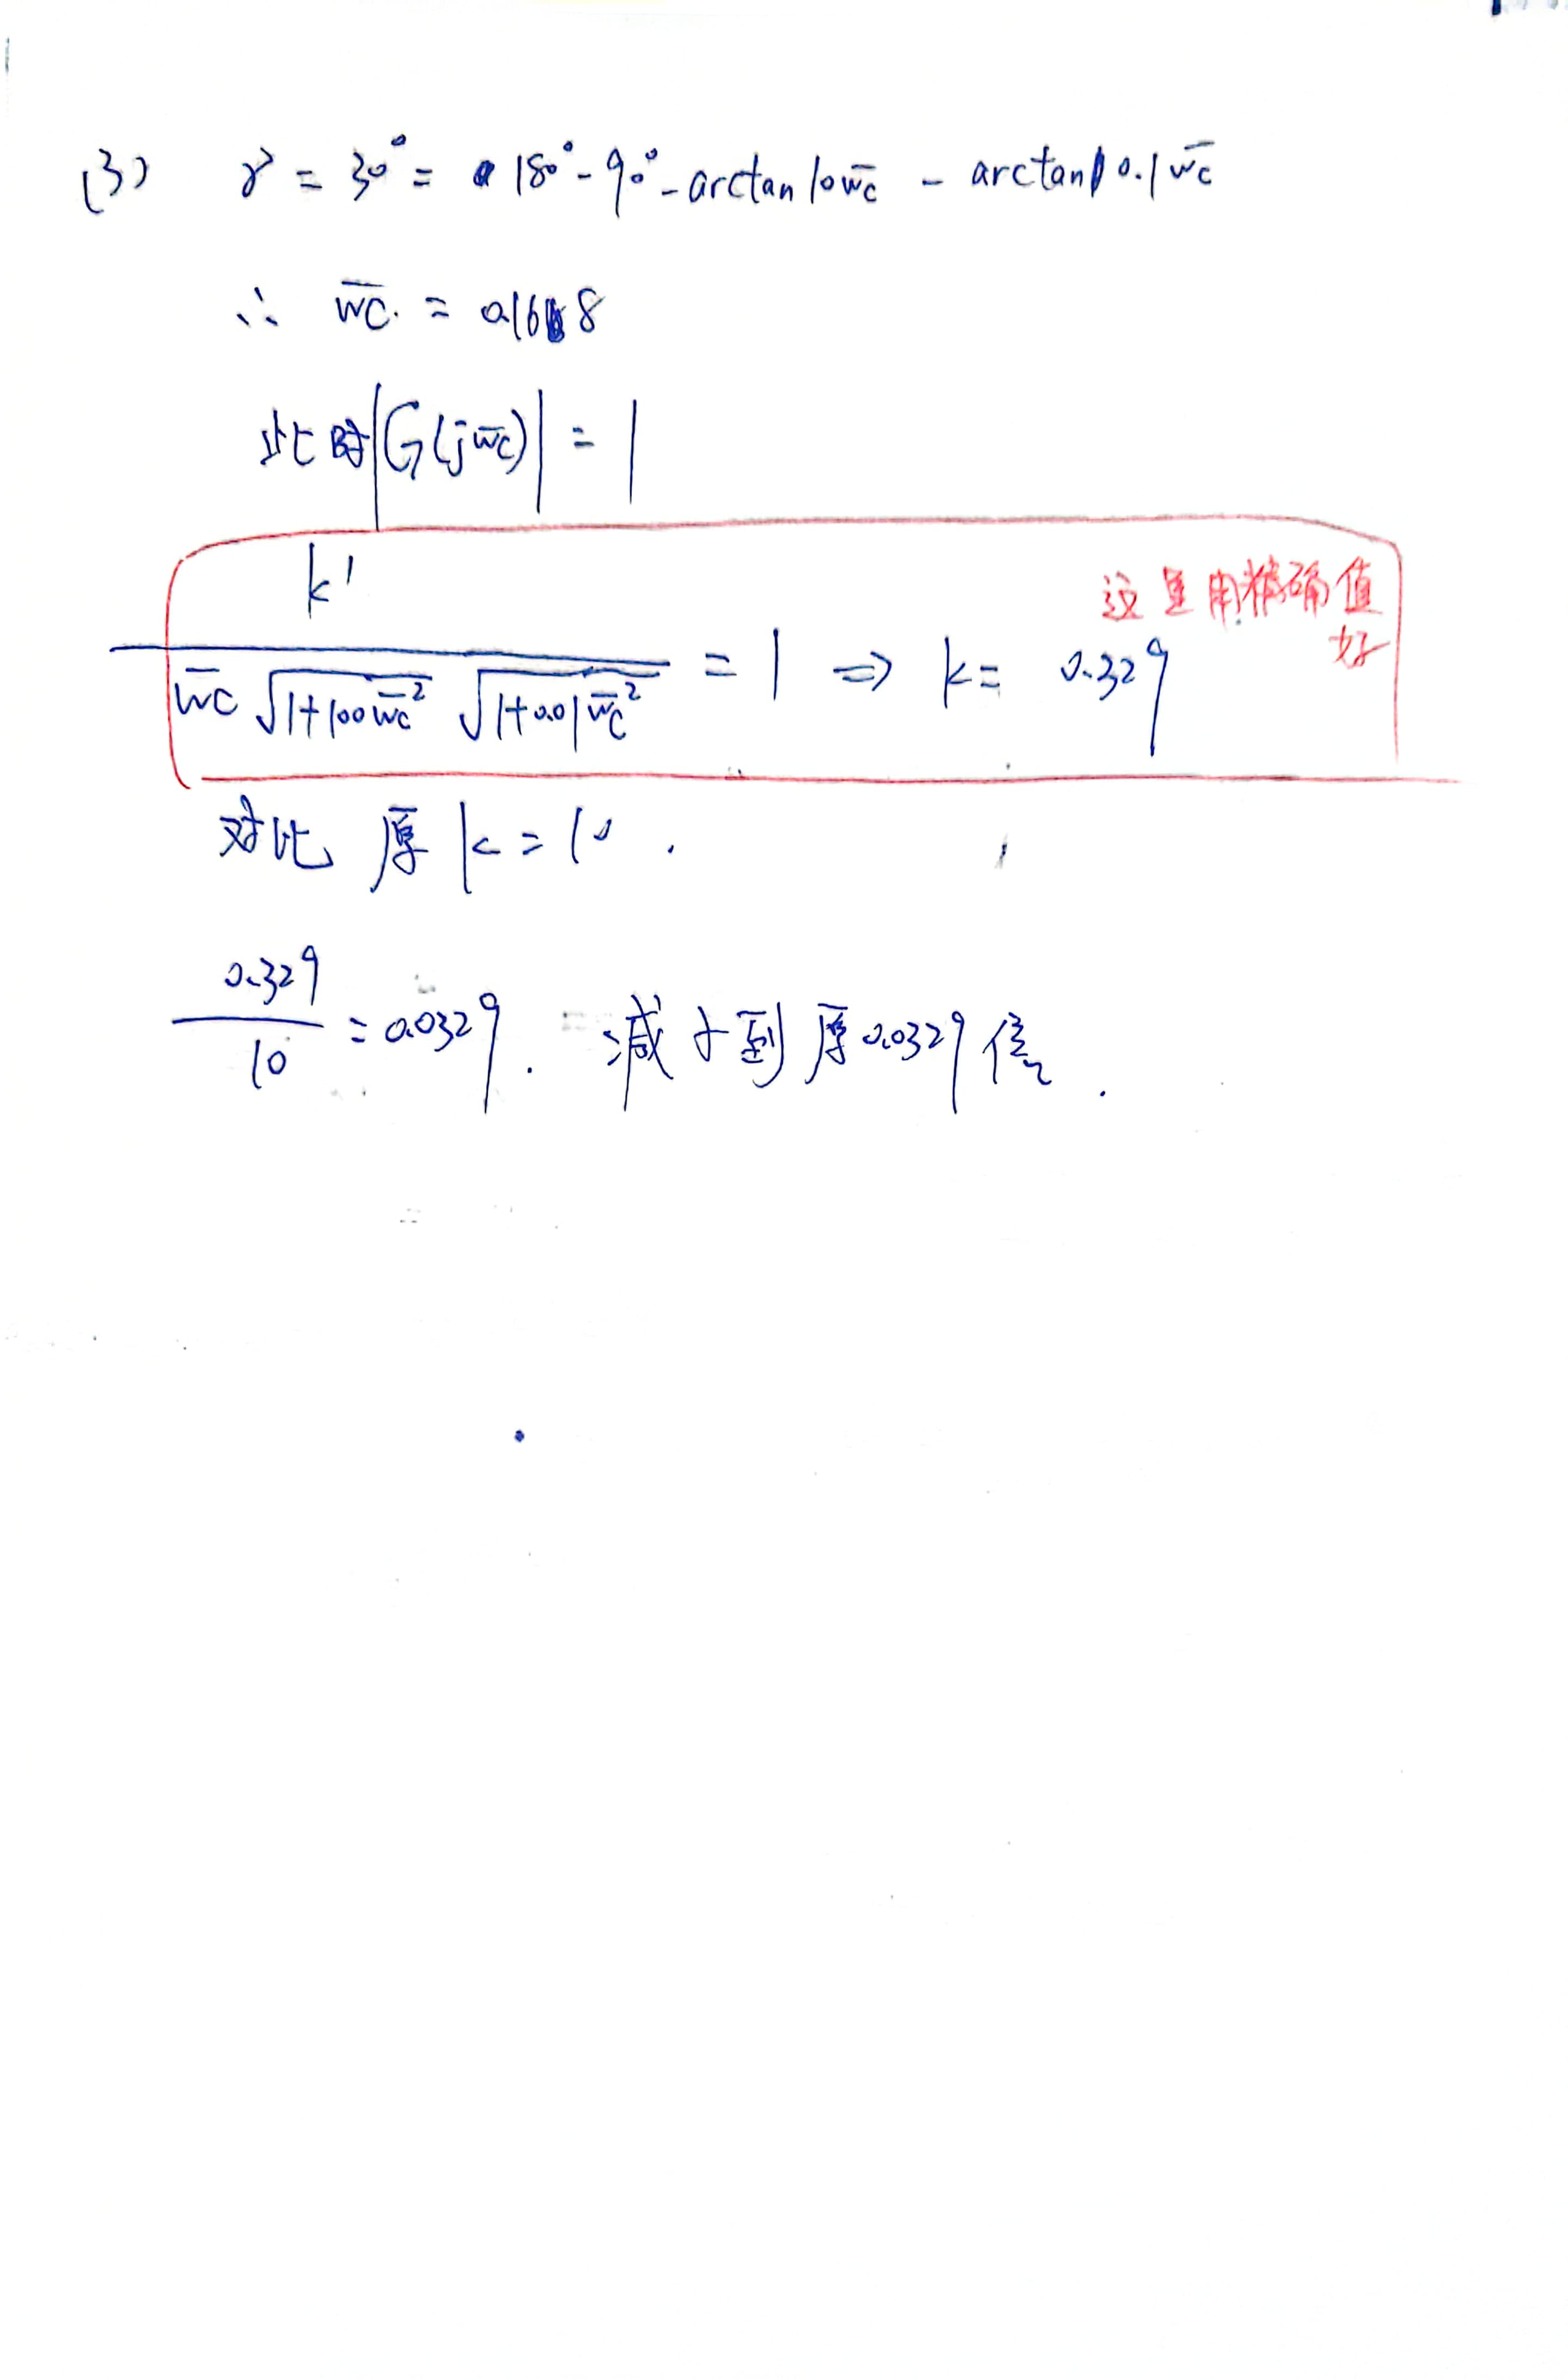 (3) γ = 30° = 180° - 90° - arctan10w̄c - arctan0.1w̄c
∴ w̄c. = 0.1668
此时 |G(jw̄c)| = 1
k'
这里用精确值
好
w̄c √1+100w̄c² √1+0.01w̄c² = 1 ⇒ k = 0.329
对比 原 k = 10 .
0.329
10
= 0.0329 . 减少到原0.0329倍 .